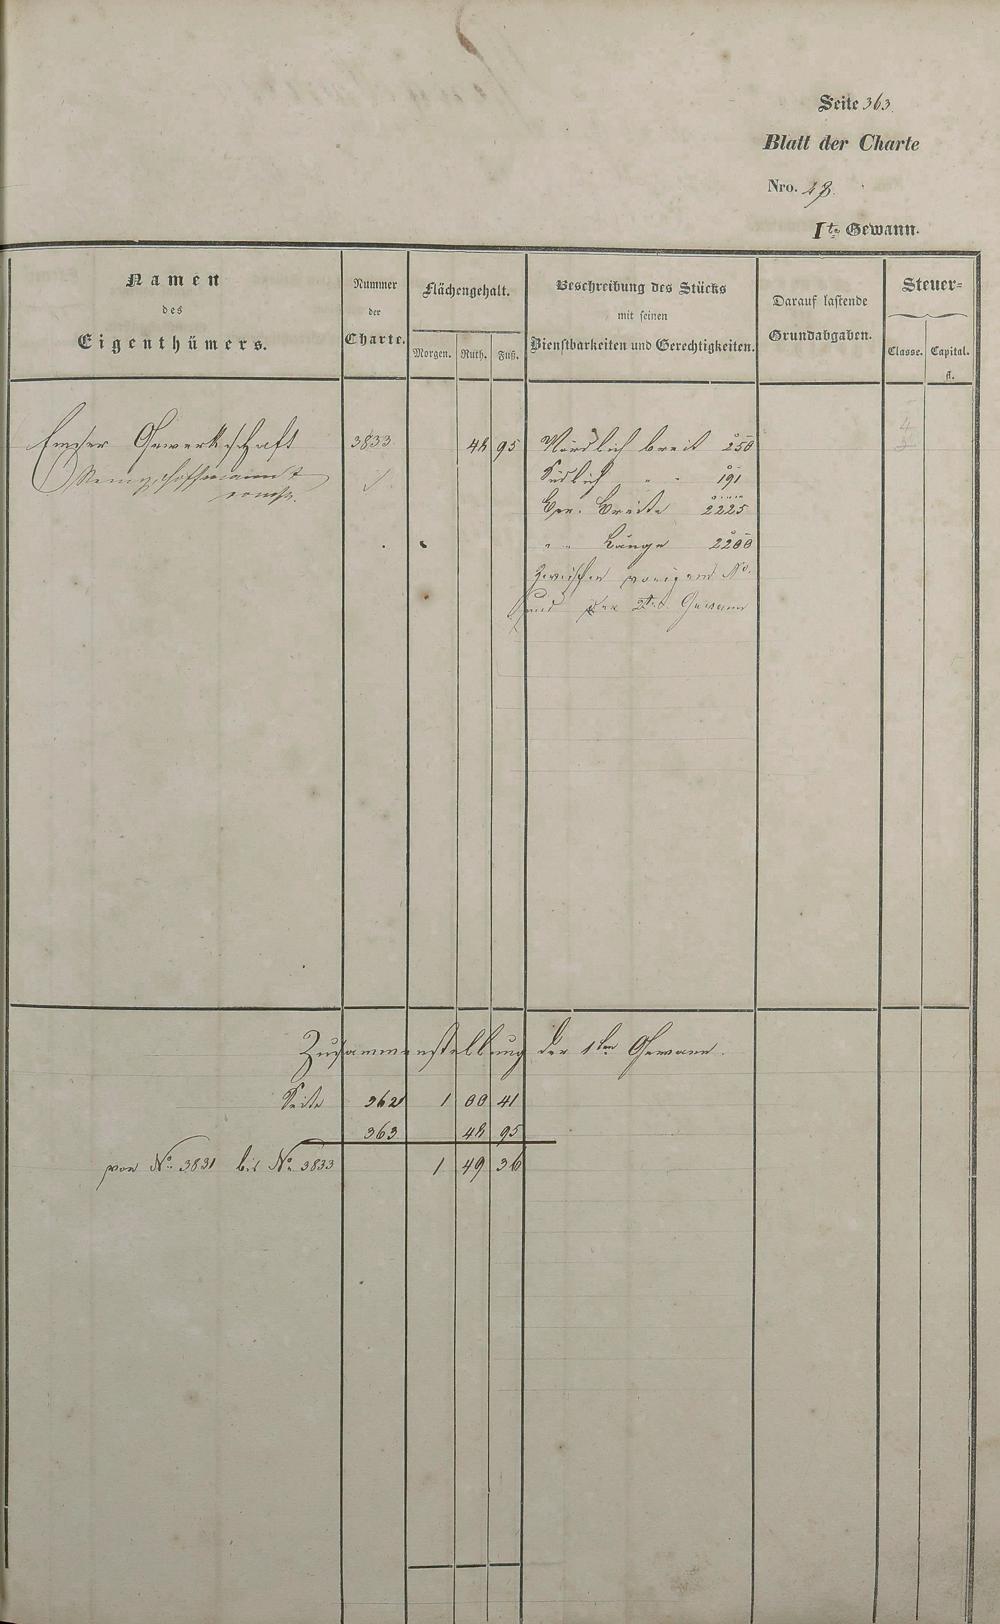 Seite 363.
Blatt der Charte
Nro. 28.
Ite Gewann.
Namen
des
Eigenthümers.
Nummer
der
Charte.
Flächengehalt.
Morgen. Ruth. Fuß.
Beschreibung des Stücks
mit seinen
Dienstbarkeiten und Gerechtigkeiten.
Darauf lastende
Grundabgaben.
Steuer=
Classe. Capital.
fl.
Emser Gewerkschaft 3833. 48 95 Nördlich breit 250 4
Südlich " " 191
Ger. Breite 2225
" " Länge 2200
Zwischen vorigem No.
und der 2ten Gewann
Zusammenstellung der 1ten Gewann.
Seite 362 1 00 41
363 48 95
von No. 3831 bis No. 3833 1 49 36